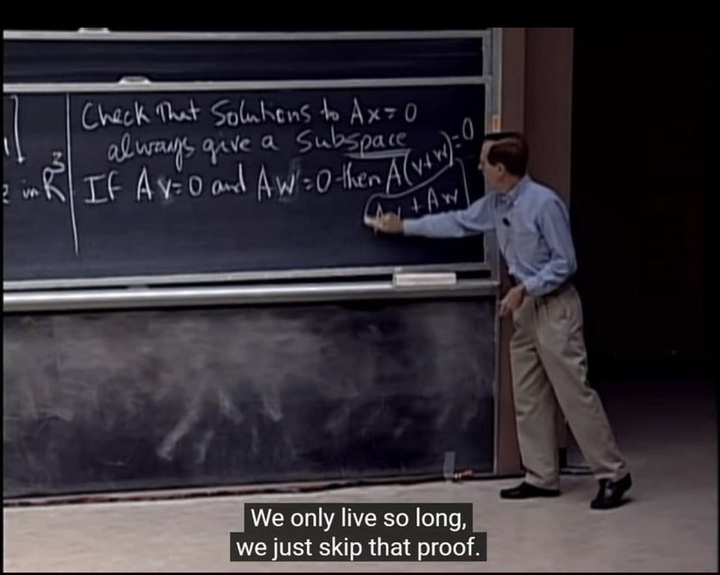 Check that Solutions to Ax=0
always give a Subspace
2 in R³
If Av=0 and Aw=0 then A(v+w)=0
Av + Aw
We only live so long,
we just skip that proof.